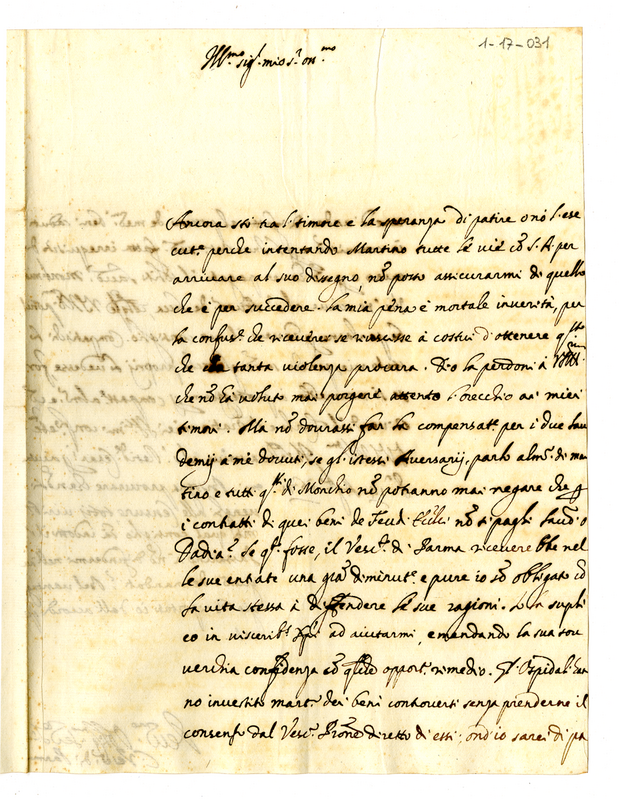 1-17-031
Ill.mo sig.r mio s.r oss.mo
Ancora stò tra l. timore e la speranza di patire o nò l. ese
cut.e perche intentando Martino tutte le vie cō S. A. per
arrivare al suo dissegno, nō posso assicurarmi di quello
che è per succedere. La mia pena è mortale in verità, per
la confus.e che riceverei se riuscisse à costui d'ottenere q.llo
che tanta violenza procura. Dio la perdoni à
che nō hà voluto mai porgere attento l. orecchio ai miei
timori. Ma nō dovrassi far la compensat.e per i due lau
demij à me dovuti, se gl. istessi Aversarij, parlo alm.o di mar
tino e tutti q.lli di Monchio nō potranno mai negare che
i contratti di quei beni de feudi nō si paghi Laud.o o
Se q.to fosse, il Vesc.o di Parma ricevere bbe nel
le sue entrate una gra diminut.e e pure io sō obligato cō
la vita stessa à diffendere le sue ragioni. La supli
co in visceribus Xpi ad aiutarmi, e mandando la sua sou
verchia confidenza cō opport.o rimedio. Gl. Ospidal. han
no investito mart.o dei beni controversi senza prenderne il
consenso dal Vesc.o Prōne diretto di essi, ond'io sarei di pa